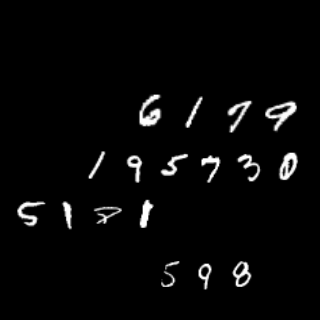 6179
195730
5181
598